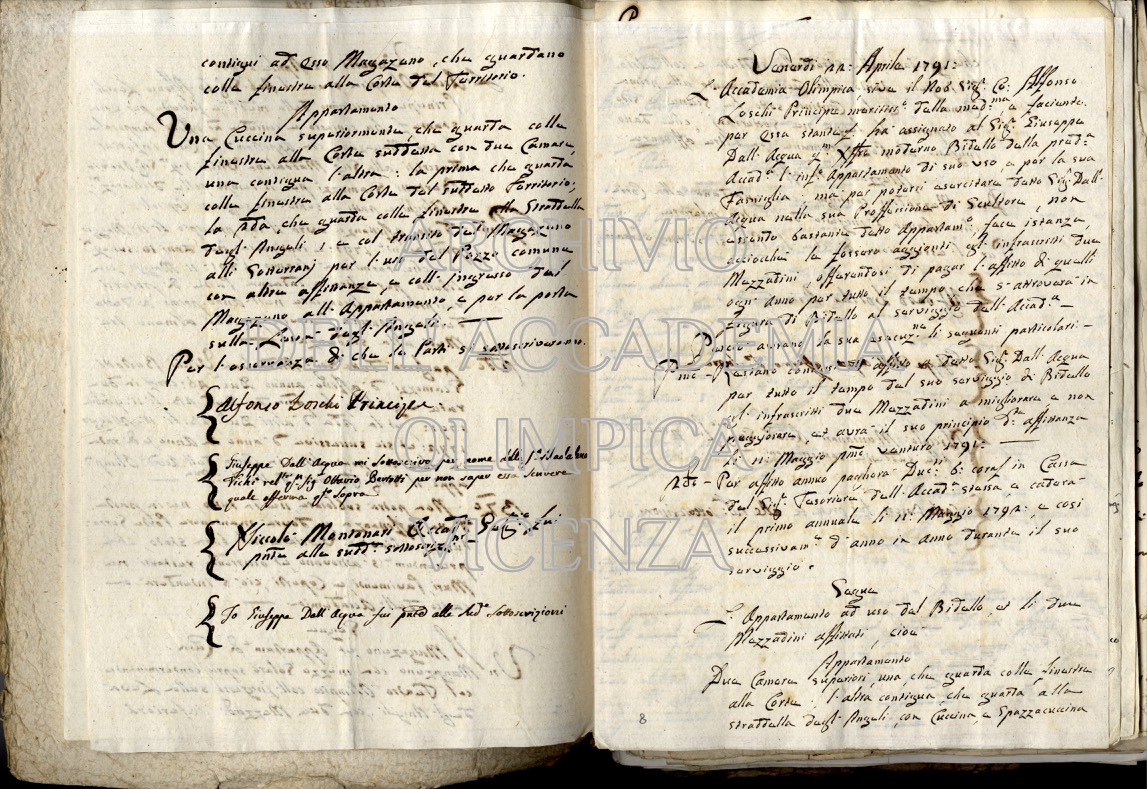 contigui ad esso Magazeno, che guardano
colle finestre alla Corte del Territorio.
Appartamento
Una Cuccina superiormente che guarda colle
finestre alla Corte suddetta con due Camere,
una contigua l'altra: la prima che guarda
colle finestre alla Corte del suddetto Territorio,
la 2da, che guarda colle finestre alla Stradella
degl'Angeli; e col transito del Magazeno
alli Sotterranj per l'uso del Pozzo comune
con altre affittanze, e coll'Ingresso dal
Magazeno all'Appartamento, e per la porta
sulla degl'Angeli.
Per l'osservanza di che le Parti si sottoscriveranno.
Alfonso Loschi Principe
Giuseppe Dall'Acqua mi sottoscrivo per nome della
Vichi Sig. Ottavio Bertotti per non saper essa scrivere
quale afferma qto sopra
Niccolò Montanari
pnte alla sudda. sottoscriz.
Io Giuseppe Dall'Acqua fui pnte alle sudte sottoscrizioni
Venerdì 22: Aprile 1791:
L'Accademia Olimpica, e siva il Nob. Sigr. Co. Alfonso
Loschi Principe meritiss.o della medma, e faciente
per essa stante ha assegnato al Sigr. Giuseppe
Dall'Acqua qm Xffro moderno Bidello della predta
Accada. l'infto Appartamento di suo uso, e per la sua
Famiglia; ma per poter esercitare detto Sigr. Dall'
Acqua nella sua Proffessione di Scultore, non
essendo bastante detto Appartamo. fece istanza
acciocchè le fossero aggionti gl'infrascritti due
Mezzadini, offerendosi di pagar l'affitto di quelli
ogn'anno per tutto il tempo che s'attroverà in
figura di Bidello al serviggio dell'Accada.
Perciò avrano la sua esecuzne li seguenti particolari
Pmo Restano affitto a detto Sigr. Dall'Acqua
per tutto il tempo del suo serviggio di Bidello
gl'infrascritti due Mezzadini a migliorare e non
peggiorare, et avrà il suo principio da affittanza
li 11: Maggio pmo venturo 1791:
2do Per affitto annuo pagherà Ducti 6: in Cassa
del Sigr. Tesoriere dell'Accada. stessa, e caderà
il primo annuale li 11: Maggio 1792: e così
successivame. d'anno in anno durante il suo
serviggio.
Segue
L'Appartamento ad uso del Bidello, et li due
Mezzadini affittati, cioè
Appartamento
Due Camere superiori, una che guarda colle finestre
alla Corte; l'altra contigua, che guarda alla
stradella degl'Angeli, con Cuccina e Spazzacuccina
8
ARCHIVIO
DELL'ACCADEMIA
OLIMPICA
VICENZA